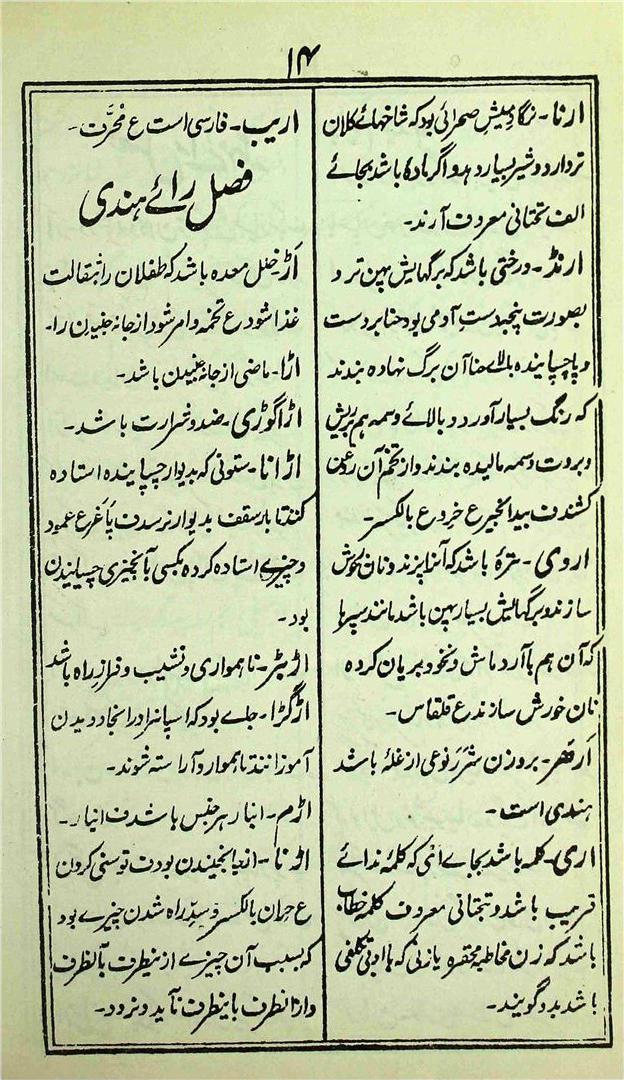 ۱۴
ارنا - نگاومیش صحرائی بود کہ شاخہائے کلان
تر دارد و شیر بسیار دہد و اگر مادہ باشد بجائے
الف تحتانی معروف آرند۔
ارنڈ - درختی باشد کہ برگہایش پہن تر و
بصورت پنجہ دست آدمی بود حنا بر دست
و پا چسپانیدہ بالاے حنا آن برگ نہادہ بندند
کہ رنگ بسیار آورد و بالائے وسمہ ہم بریش
و بروت وسمہ مالیدہ بندند و از تخم آن روغن
کشند ف بید انجیر ع خروع بالکسر۔
اروی - ترۂ باشد کہ آنرا پزند و نان خورش
سازند و برگہایش بسیار پہن باشد مانند سپرہا
کہ آن ہم با آرد ماش و نخود بریان کردہ
نان خورش سازند ع قلقاس۔
ارھر - بروزن شرر نوعی از غلہ باشد
ہندی است۔
اری - کلمہ باشد بجاے ائی کہ کلمۂ ندائے
قریب باشد و بتحتانی معروف کلمۂ خطاب
باشد کہ زن مخاطبہ محقرہ یا زنی کہ با او بی تکلفی
باشد بدو گویند۔
اریب - فارسی است ع محرّف۔
فصل رائے ہندی
اڑ - خلل معدہ باشد کہ طفلان را بثقالت
غذا شود ع تخمہ و امر شود از جانہ جنبیدن را۔
اڑا - ماضی از جانہ جنبیدن باشد۔
اڑاگوڑی - ضد و شرارت باشد۔
اڑانا - ستونی کہ بدیوار چسپانیدہ استادہ
کنند تا بار سقف بدیوار نرسد ف پاغر ع عمود
و چیزے استادہ کردہ بکسی یا بچیزی چسپانیدن
بود۔
اڑبڑ - ناہمواری و نشیب و فراز راہ باشد
اڑگڑا - جاے بود کہ اسپان را در انجا دویدن
آموزانند تا ہموار و آراستہ شوند۔
اڑم - انبار ہر جنس باشد ف انبار۔
اڑنا - از جا نجنبیدن بود ف توسنی کردن
ع حران بالکسر و سدّ راہ شدن چیزے بود
کہ بسبب آن چیزے از ینطرف بآنطرف
و از انطرف باینطرف نآید و نرود۔